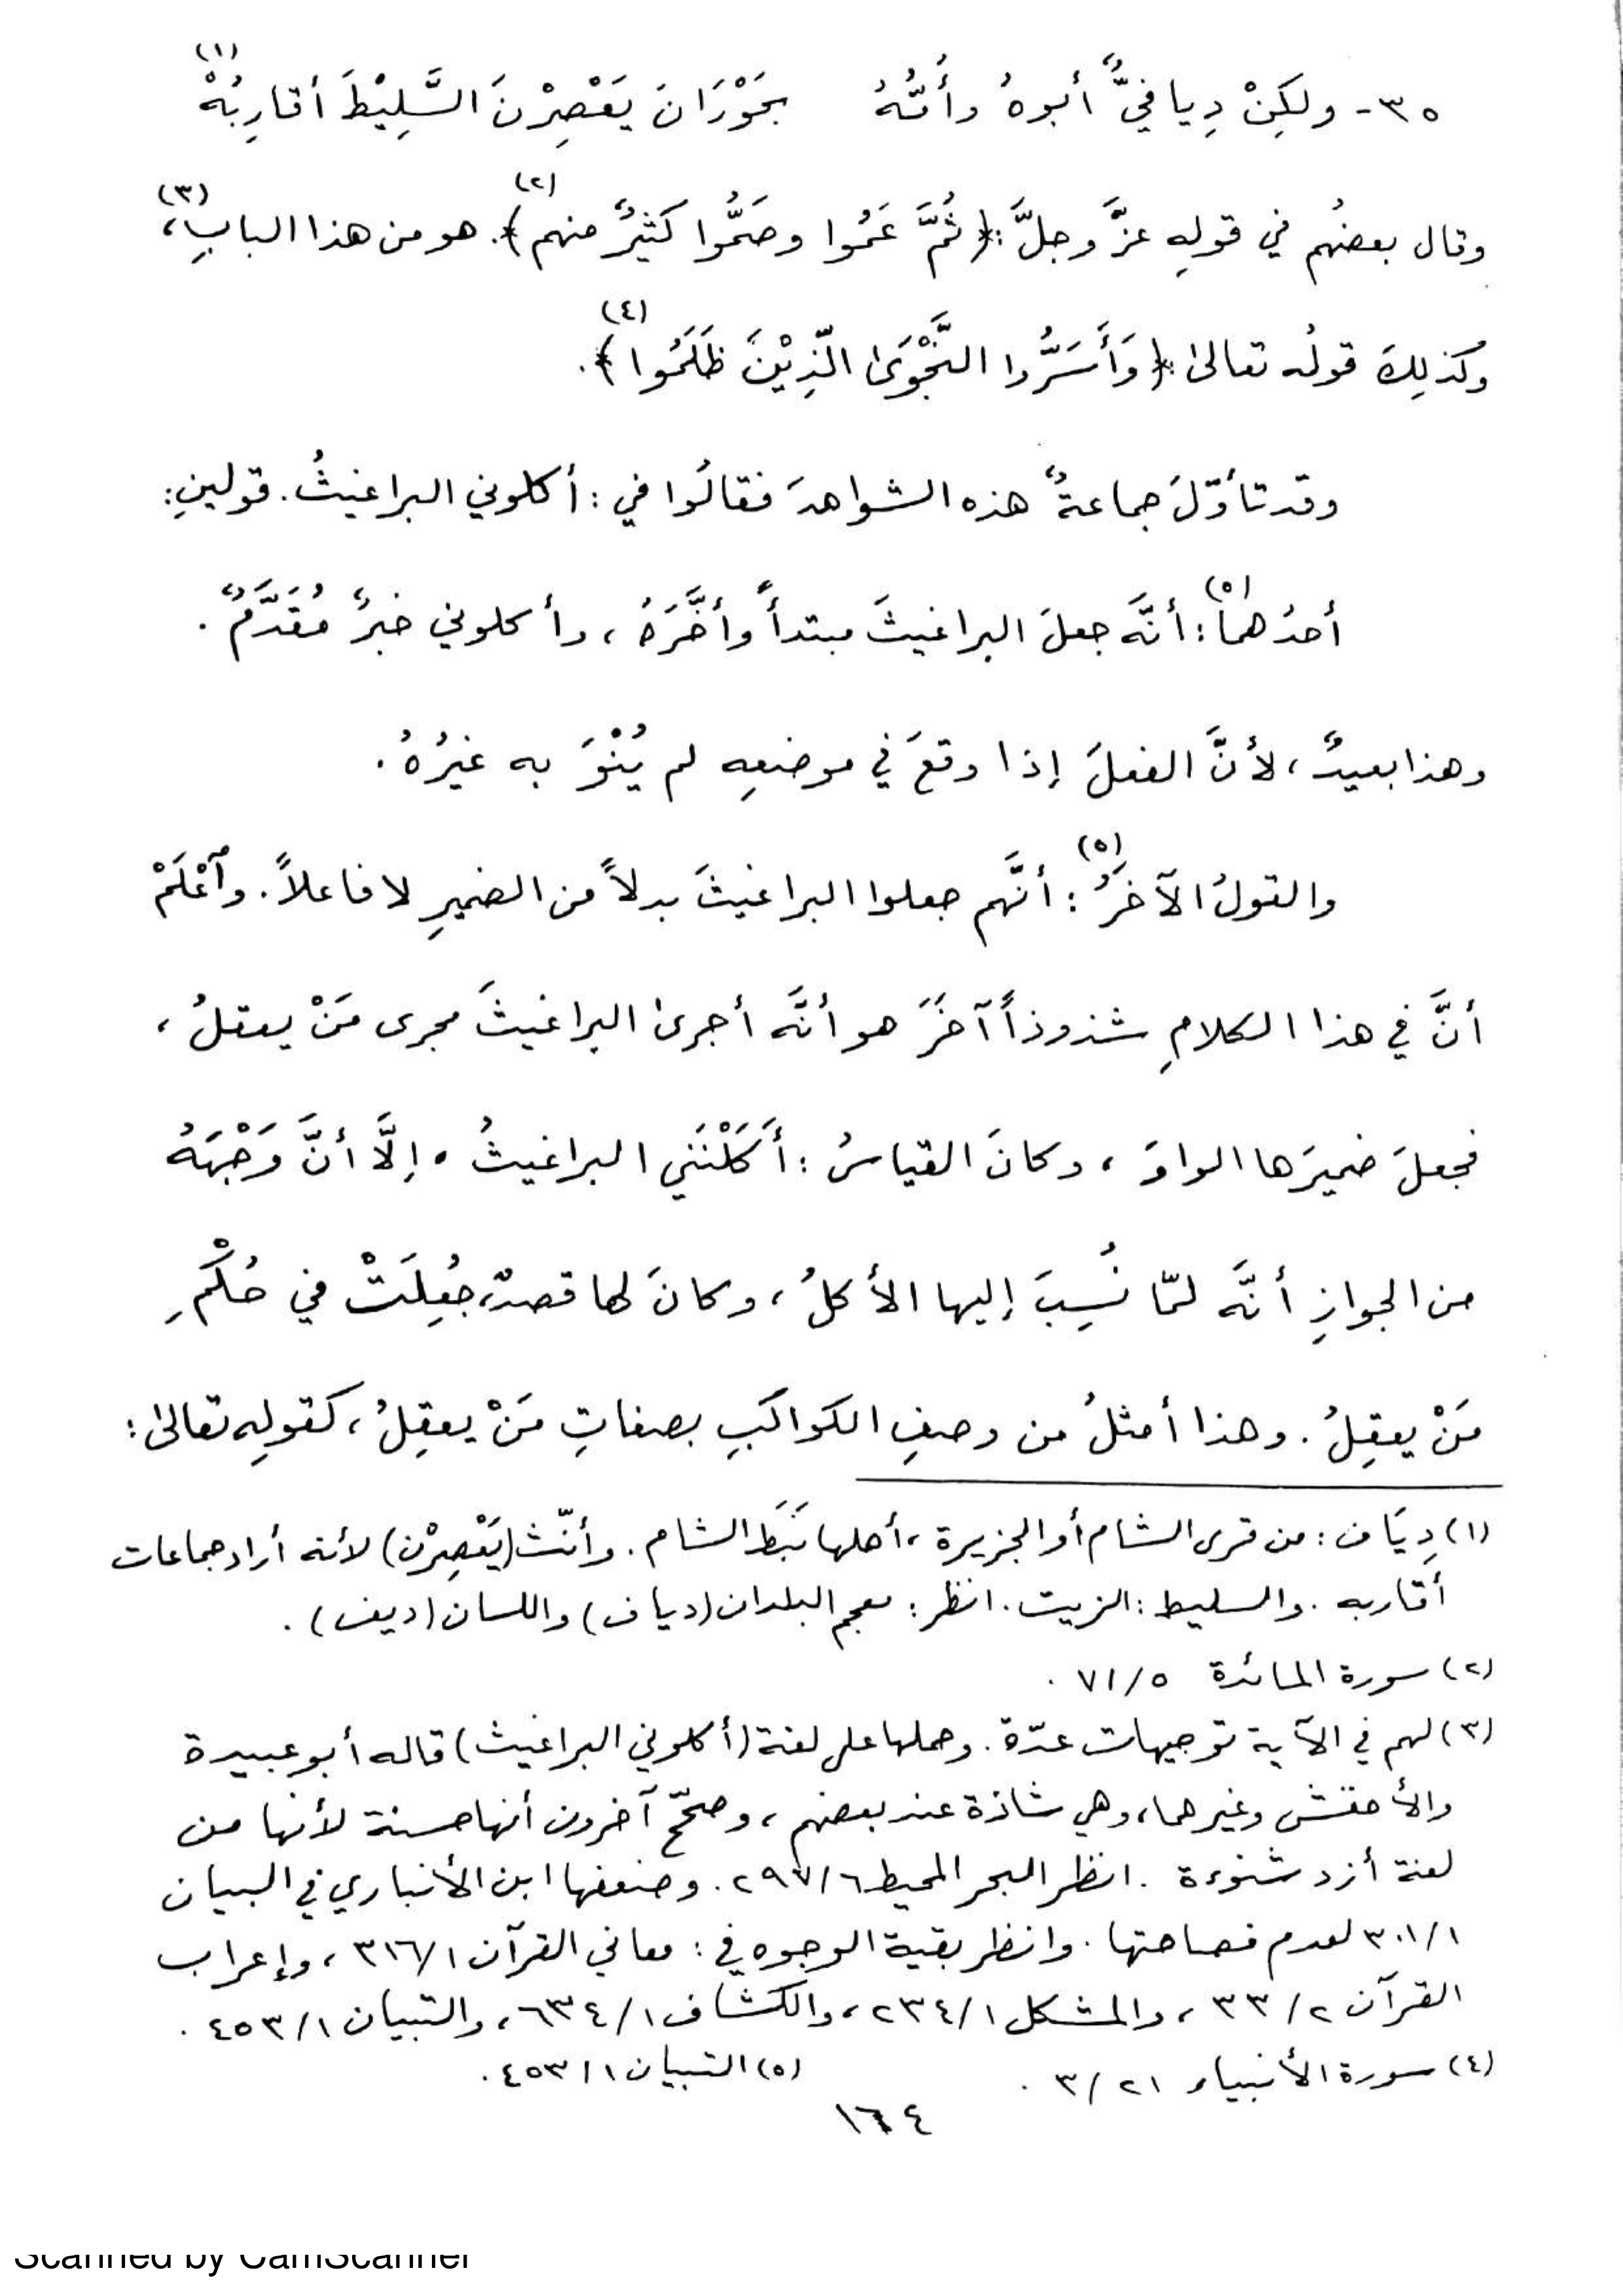 ٣٥- ولكِنْ دِيافيٌّ أبوهُ وأُمُّهُ بحَوْرَانَ يَعْصِرْنَ السَّلِيْطَ أقارِبُهْ (١)
وقال بعضُهُم في قولِهِ عزَّ وجلَّ: ﴿ ثُمَّ عَمُوا وصَمُّوا كَثيرٌ منهم ﴾(٢). هو من هذا البابِ(٣)،
وكذلِكَ قولُه تعالىٰ: ﴿ وَأَسَرُّوا النَّجْوَىٰ الّذِيْنَ ظَلَمُوا ﴾(٤).
وقد تأوّلَ جماعةٌ هذه الشواهدَ فقالُوا في: أكلوني البراغيثُ. قولينِ:
أحدُهما(٥): أنَّه جعلَ البراغيثَ مبتدأً وأخَّرَهُ، وأكلوني خبرٌ مُقَدَّمٌ.
وهذا بعيدٌ، لأنَّ الفعلَ إذا وقعَ في موضعِهِ لم يُنْوَ به غيرُهُ.
والقولُ الآخَرُ(٥): أنَّهم جعلوا البراغيثَ بدلاً من الضميرِ لا فاعلاً. وٱعْلَمْ
أنَّ في هذا الكلامِ شذوذاً آخَرَ هو أنَّه أجرىٰ البراغيثَ مجرى مَنْ يعقلُ،
فجعلَ ضميرَها الواوَ، وكانَ القياسُ: أَكَلْنَني البراغيثُ. إلَّا أنَّ وَجْهَهُ
من الجوازِ أنَّه لمّا نُسِبَ إليها الأكلُ، وكانَ لها قصدٌ، جُعِلَتْ في حُكْمِ
مَنْ يعقِلُ. وهذا أمثلُ من وصفِ الكواكبِ بصفاتِ مَنْ يعقِلُ، كقولِهِ تعالىٰ:
(١) دِيَاف: من قرى الشام أو الجزيرة، أهلها نَبَط الشام. وأنّث (يَعْصِرْن) لأنه أراد جماعات
أقاربه. والسليط: الزيت. انظر: معجم البلدان (دياف) واللسان (ديف).
(٢) سورة المائدة ٥/٧١.
(٣) لهم في الآية توجيهات عدّة. وحملها على لغة (أكلوني البراغيث) قاله أبو عبيدة
والأخفش وغيرهما، وهي شاذة عند بعضهم، وصحّح آخرون أنها حسنة لأنها من
لغة أزد شنوءة. انظر البحر المحيط ٦/٢٩٧. وضعفها ابن الأنباري في البيان
١/٣٠١ لعدم فصاحتها. وانظر بقية الوجوه في: معاني القرآن ١/٣١٦، وإعراب
القرآن ٢/٣٣، والمشكل ١/٢٣٤، والكشاف ١/٦٣٤، والتبيان ١/٤٥٣.
(٤) سورة الأنبياء ٢١/٣. (٥) التبيان ١/٤٥٣.
١٦٤
Scanned by CamScanner